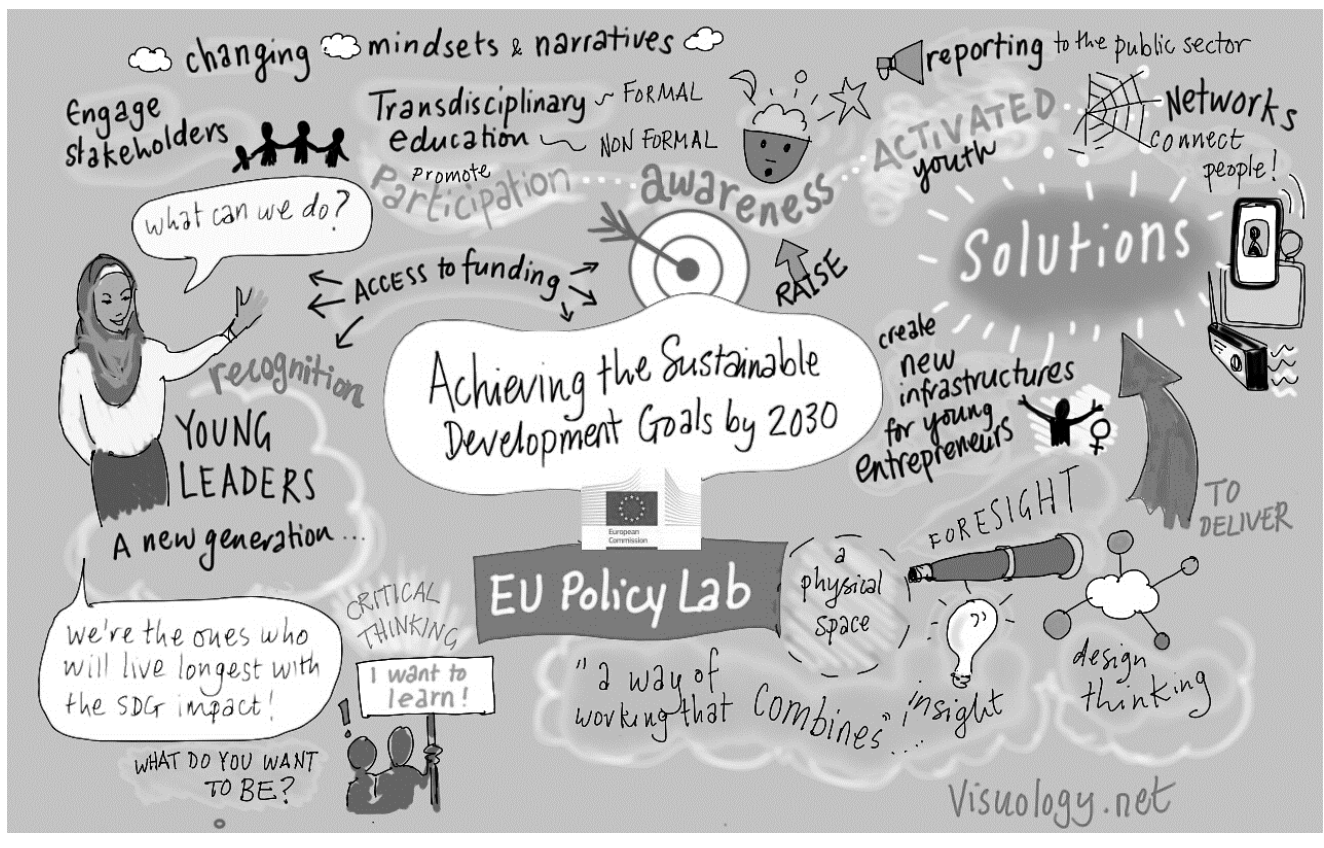 changing mindsets & narratives
reporting to the public sector
Engage
stakeholders
Transdisciplinary
education
FORMAL
NON FORMAL
promote
Participation
awareness
ACTIVATED
youth
Networks
connect
people!
what can we do?
ACCESS to funding
RAISE
Solutions
recognition
YOUNG
LEADERS
A new generation...
Achieving the Sustainable
Development Goals by 2030
create
new
infrastructures
for young
entrepreneurs
TO
DELIVER
European
Commission
EU Policy Lab
a
physical
space
FORESIGHT
we're the ones who
will live longest with
the SDG impact!
CRITICAL
THINKING
I want to
learn!
!
WHAT DO YOU WANT
TO BE?
"a way of
working that
combines"....
insight
design
thinking
Visuology.net